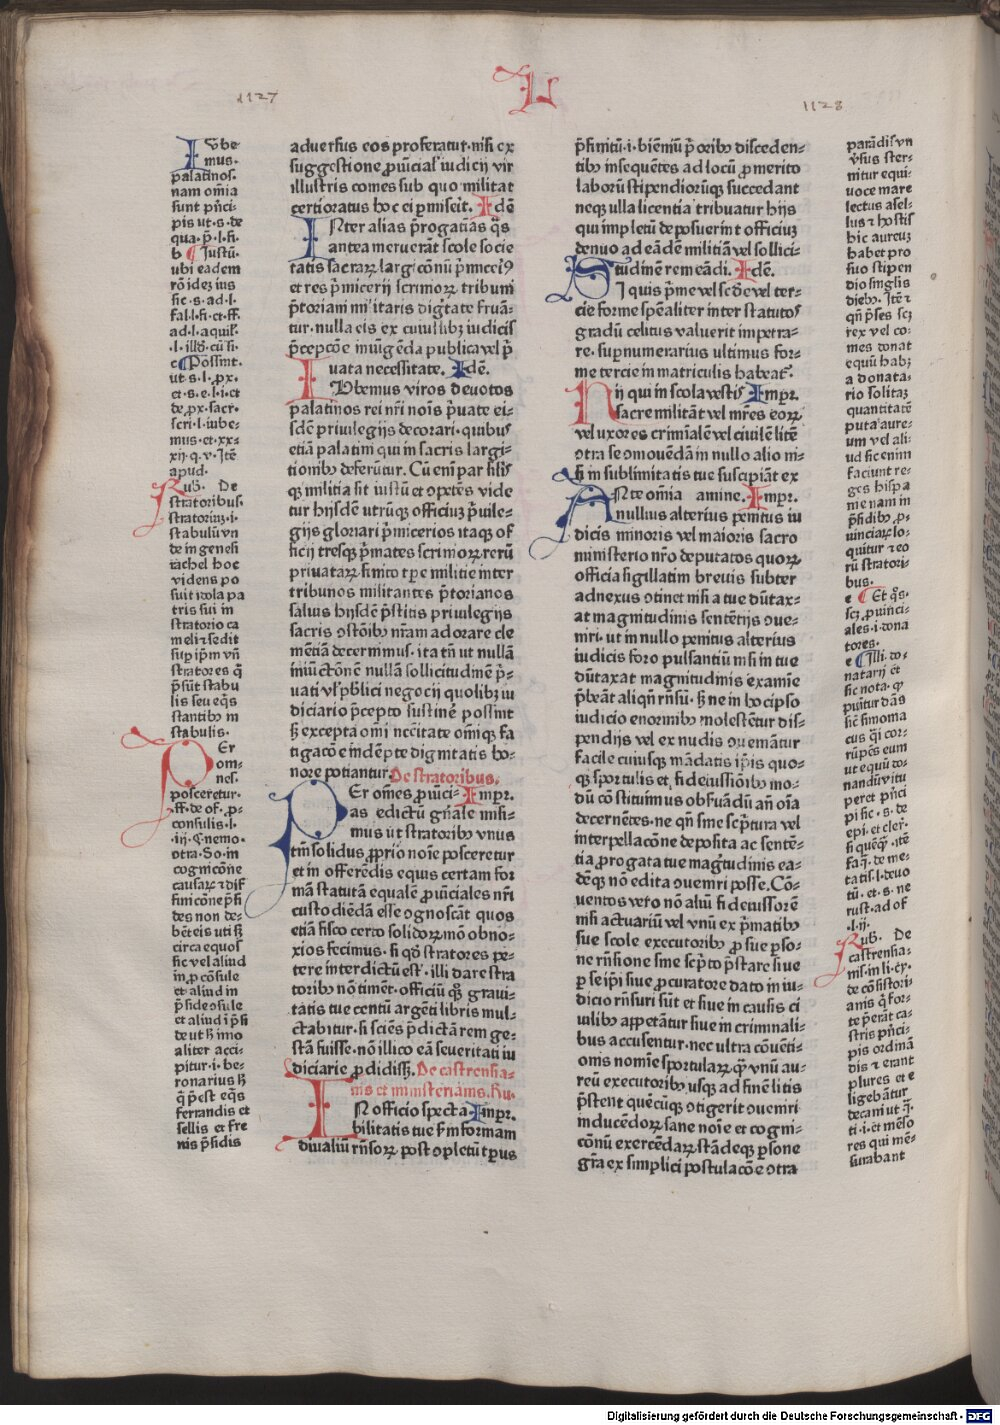 1127
L
1128
Iube-
mus.
palatinos.
nam omīa
sunt pñci-
pis ut. s. de
qua. p̄. l. fi.
b Iustū.
ubi eadem
rō idez ius
sic. s. ad. l.
fal. l. fi. et. ff.
ad. l. aquil.
c Possint.
ut. s. l. px.
et. s. e. l. i. et
de. px. sacr.
scri. l. iube-
mus. et. xx-
xij. q. v. Itē
apud.
Rub. De
stratoribus.
stratoriuz. i.
stabulū vn
de in genesi
rachel hoc
videns po
suit idola pa
tris sui in
stratorio ca
meli et sedit
sup ip̄m vn̄
stratores q̄
p̄sūt stabu
lis seu eq̄s
stantibꝫ in
stabulis.
PEr
om-
nes.
posceretur.
ff. de of. p-
consulis. l.
.iij. C. nemo.
cognicōne
causaꝝ et dif
finicōne p̄si
des non de-
bēt eis uti sꝫ
circa equos
sic vel aliud
in pcōsule
et aliud in
p̄side
et aliud i p̄si
de ut sꝫ imo
aliter acci-
pitur. i. be-
ronarius sꝫ
q̄ p̄est eq̄s
ferrandis et
sellis et fre
nis p̄sidis
aduersus eos proferatur. nisi ex
suggestione puīcial' iudicij vir
illustris comes sub quo militat
certioratus hoc ei pmiserit. Idē
INter alias p̄rogatiās q̄s
antea meruerāt scole socie
tatis sacraꝝ largicōnū p̄miceri9
et res p̄micerij scrinioꝝ tribuni
p̄toriani militaris diḡtate fruā-
tur. nulla eis ex cuiuslibꝫ iudicis
p̄cepcōe iniūgēda publica vel p̄
uata necessitate. Idē.
IUbemus viros deuotos
palatinos rei nr̄i noīs p̄uate ei-
sdē priuilegijs decorari. quibus
etiā palatini qui in sacris largi-
tionibꝫ deferūtur. Cū eni par sit
qꝫ militia sit iustū et opetēs vide
tur hijsdē utrūqꝫ officiuꝫ p̄uile-
gijs gloriari p̄micerios itaqꝫ of
ficij tresqꝫ p̄mates scrinioꝝ rerū
priuataꝝ finito tpe militie inter
tribunos militantes p̄torianos
saluis hijsdē p̄stitis priuilegijs
sacris ostōibꝫ nr̄am adorare cle
mētiā decernimus. ita tn̄ ut nullā
iniūctōnē nullā sollicitudinē p̄-
uati vl' pblici negocij quolibꝫ iu
diciario p̄cepto sustinē possint
sꝫ excepta omi nec̄citate omīqꝫ fa
tigacōe indēpte dignitatis ho-
nore potiantur. De stratoribus.
PEr om̄es prouīci- Impr.
as edictū gn̄ale misi-
mus ut stratoribꝫ vnus
tm̄ solidus pprio noīe posceretur
et in offerēdis equis certam for
mā statutā equalē puīciales nr̄i
custodiēdā esse ognoscāt quos
etiā fisco certo solidoꝝ mō obno-
xios fecimus. si qꝫ stratores pe-
tere interdictū est. illi dare stra
toribꝫ nō timēt. officiū qꝫ graui-
tatis tue centū argēti libris mul-
ctabitur. si sciēs p̄dictā rem ge-
stā fuisse. nō illico eā seueritati iu
diciarie pdidisꝫ. De castrensia-
nis et ministerianis. Ru.
IN officio specta- Impr.
bilitatis tue fr̄m formam
diualiū rn̄soꝝ post opletū tpus
p̄finitū. i. bienniū p̄oribꝫ disceden-
tibꝫ insequētes ad locū p merito
laborū stipendioruqꝫ succedant
neqꝫ ulla licentia tribuatur hijs
qui impletū deposuerint officiuꝫ
denuo ad eādē militiā vel sollici-
tudinē remeādi. Idē.
SI quis p̄me vel sc̄de vel ter-
cie forme spēaliter inter statutos
gradū celitus valuerit impetra-
re. supnumerarius ultimus for-
me tercie in matriculis habeat'.
HIj qui in scola vestis Impr.
sacre militāt vel mr̄es eoꝝ
vel uxores crimīalē vel ciuilē litē
otra se omouēdā in nullo alio ni-
si in sublimitatis tue suscipiāt ex
ANte omīa amine. Impr.
nullius alterius penitus iu
dicis minoris vel maioris sacro
ministerio nr̄o deputatos quoꝝ
officia sigillatim breuis subter
adnexus otinet nisi a tue dūtax-
at magnitudinis sentētijs oue-
niri. ut in nullo penitus alterius
iudicis foro pulsantiū nisi in tue
dūtaxat magnitudinis examīe
p̄beāt aliqn̄ rn̄sū. sꝫ ne in hoc ipso
iudicio enormibꝫ molestētur dis-
pendijs vel ex nudis ouemātur
facile cuiusqꝫ mādatis ip̄is quo-
qꝫ sportulis et fideiussiōibꝫ mo-
dū cōstituimus obfuādū an̄ oīa
decernētes. ne qn̄ sine scp̄tura vel
interpellacōne deposita ac sentē-
tia progata tue maḡtudinis ea-
dēqꝫ nō edita oueniri posse. Cō-
uentos vero nō aliū fideiussorē
nisi actuariū vel vnū ex p̄matibꝫ
sue scole executoribꝫ p sue pso-
ne rn̄sione sine scp̄to p̄stare siue
p seipi siue pcuratore dato in iu-
dicio rn̄suri sūt et siue in causis ci
uilibꝫ appetātur siue in criminali-
bus accusentur. nec ultra cōuēti-
onis nomīe sportulaꝝ qꝫ vnū au-
reū executoribꝫ usqꝫ ad finē litis
p̄stent quēcūqꝫ otigerit oueniri
inducēdoꝝ sane noīe et cogni-
cōnū exercēdaꝝ stādeqꝫ psone
gr̄a ex simplici postulacōe otra
paradisi vn
v̄sus ster-
nitur equi-
uoce mare
lectus asel-
lus et hostis
hic aureuꝫ
habet pro
suo stipen
dio singlis
diebꝫ. Itē et
qn̄ p̄ses scꝫ
rex vel co-
mes donat
equū habꝫ
a donata-
rio solitaꝫ
quantitatē
puta aure-
um vel ali-
ud sic enim
faciunt re-
ges hispa
nie nam in
p̄sidibꝫ p-
uinciaꝝ lo-
quitur et eo
rū stratori-
bus.
e Et q̄s.
scꝫ puinci-
ales. i. dona
tores.
e Illi. do-
natarij et̄
sic nota. qꝫ
puītur dās
sic̄ simonia
cus q̄i cor-
rūpēs eum
ut equū do-
nandū vitu
peret pn̄ci
pi sic. s. de
epi. et cler.
si quēqꝫ. itē
fa q̄. de me-
tatis. l. deuo
tū. et. s. ne
rust. ad of
.l. ij.
Rub. De
castrensia-
nis. in li. ex.
de cōsistori-
anis q̄ for-
te p̄erāt ca-
stris pn̄ci-
pis ordinā
dis et erant
plures et e
ligebātur
decani ut q̄.
ti. i. et mēso
res qui mē-
surabant
Digitalisierung gefördert durch die Deutsche Forschungsgemeinschaft - DFG